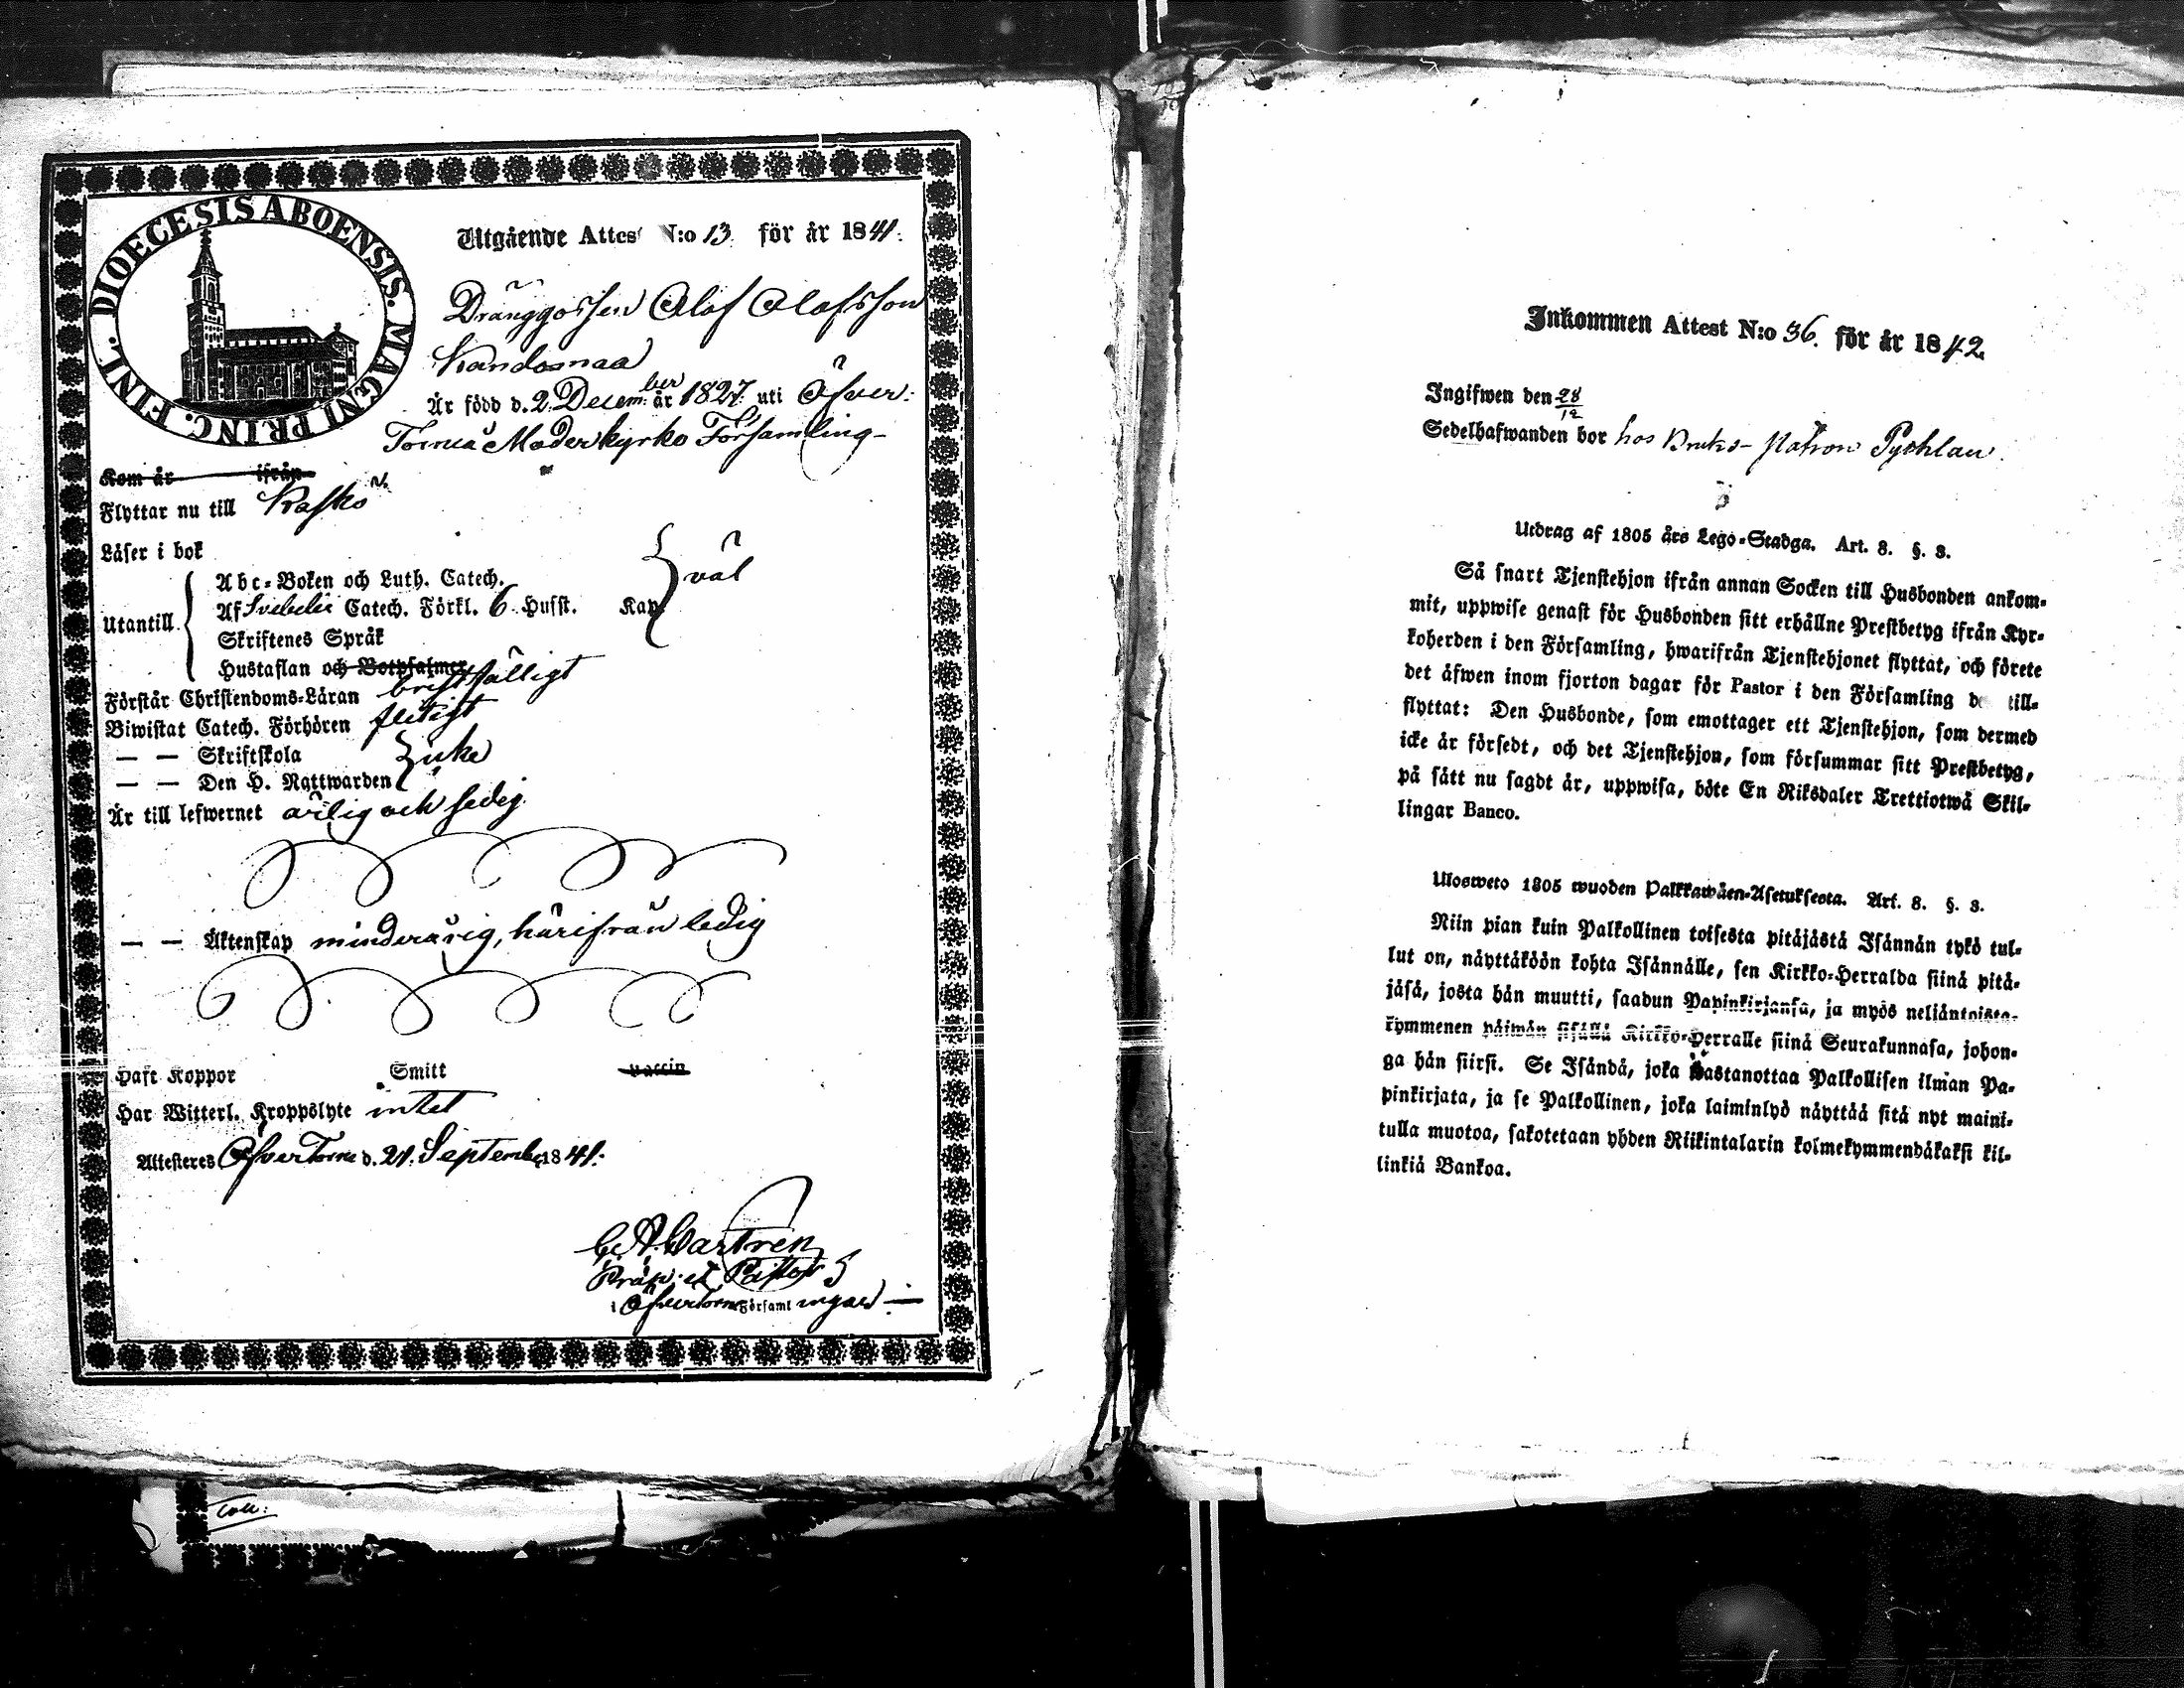 DIOECESIS ABOENSIS. MAGNI PRINC. FINL.
Utgående Attest N:o 13. för år 1841.
Dränggossen Olof Olofsson
Är född d. 2 December år 1827 uti Öfver-
Torneå Moderkyrko Församling-
Kom år ifrån
Flyttar nu till Kaskö
Läser i bok
Utantill. Abc-Boken och Luth. Catech. väl
Af Svebelii Catech. Förkl. 6 Husst. Kap
Skriftenes Språk
Hustaflan och Botpsalmer
Förstår Christendoms-Läran bristfälligt
Biwistat Catech. Förhören flitigt
— — Skriftskola icke
— — Den H. Nattwarden
Är till lefwernet ärlig och sedig
— — Äktenskap minderårig, härifrån ledig
Haft Koppor Smitt vaccin
Har Witterl. Kroppslyte intet
Attesteres ÖfverTorne d. 21. September 1841.
C. A. Castrén
Præp. et Pastor
i ÖfverTorne Församl ingar.—
Coll:
Inkommen Attest N:o 36. för år 1842.
Ingifwen den 28/12
Sedelhafwanden bor hos Bruks-Patron
Utdrag af 1805 års Lego-Stadga. Art. 8. §. 3.
Så snart Tjenstehjon ifrån annan Socken till Husbonden ankom-
mit, uppwise genast för Husbonden sitt erhållne Prestbetyg ifrån Kyr-
koherden i den Församling, hwarifrån Tjenstehjonet flyttat, och förete
det äfwen inom fjorton dagar för Pastor i den Församling de till-
flyttat: Den Husbonde, som emottager ett Tjenstehjon, som dermed
icke är försedt, och det Tjenstehjon, som försummar sitt Prestbetyg,
på sätt nu sagdt är, uppwisa, böte En Riksdaler Trettiotwå Skil-
lingar Banco.
Ulosweto 1805 wuoden Palkkawäen-Asetuksesta. Art. 8. §. 3.
Niin pian kuin Palkollinen toisesta pitäjästä Isännän tykö tul-
lut on, näyttäköön kohta Isännälle, sen Kirkko-Herralda siinä pitä-
jäsä, josta hän muutti, saadun Papinkirjansa, ja myös neljäntoista-
kymmenen päiwän sisällä Kirkko-Herralle siinä Seurakunnasa, johon-
ga hän siirsi. Se Isändä, joka wastanottaa Palkollisen ilman Pa-
pinkirjata, ja se Palkollinen, joka laiminlyö näyttää sitä nyt maini-
tulla muotoa, sakotetaan yhden Riikintalarin kolmekymmendäkaksi kil-
linkiä Bankoa.